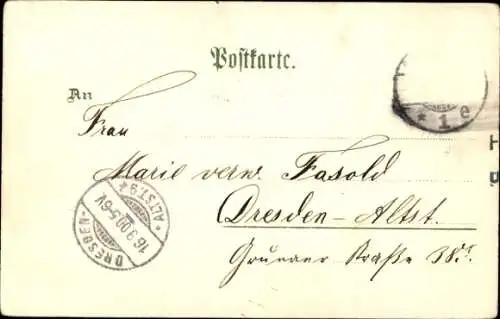 Postkarte.
An
Frau
Marie verw. Fasold
Dresden-Altst.
Grunaer Straße 38
DRESDEN-
ALTST. 9 *
16.3.00. 5-6V.
* 1 e